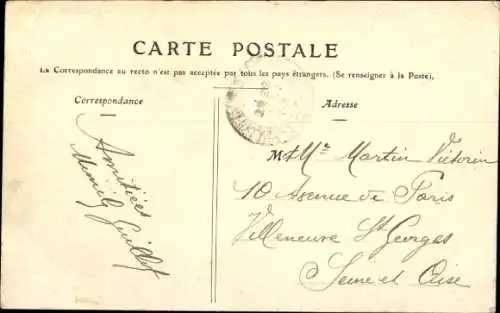 CARTE POSTALE
La Correspondance au recto n'est pas acceptée par tous les pays étrangers. (Se renseigner à la Poste).
Correspondance
Adresse
Amitiées
Guillot
M & Me Martin Victorin
10 Avenue de Paris
Villeneuve St Georges
Seine et Oise